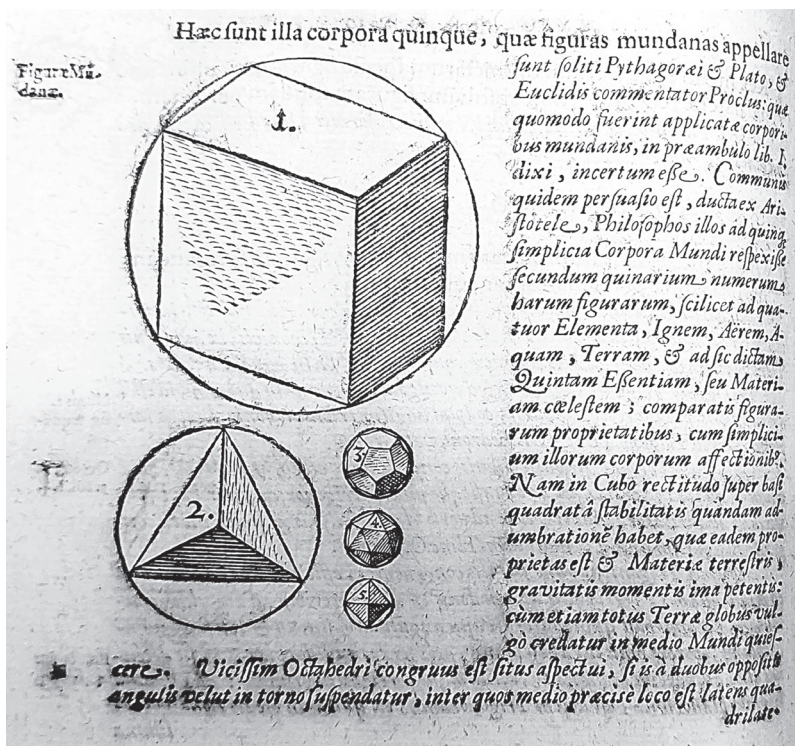 Hæc sunt illa corpora quinque, quæ figuras mundanas appellare
Figuræ Mũ-
danæ.
sunt soliti Pythagoræi & Plato, &
Euclidis commentator Proclus: quæ
quomodo fuerint applicatæ corpori-
bus mundanis, in præambulo lib. I.
dixi, incertum esse. Communis
quidem persuasio est, ducta ex Ari-
stotele, Philosophos illos ad quinq;
simplicia Corpora Mundi respexisse
secundum quinarium numerum
harum figurarum, scilicet ad qua-
tuor Elementa, Ignem, Aërem, A-
quam, Terram, & ad sic dictam
Quintam Essentiam, seu Materi-
am cœlestem; comparatis figura-
rum proprietatibus, cum simplici-
um illorum corporum affectionib9.
Nam in Cubo rectitudo super basi
quadratâ stabilitatis quandam ad-
umbrationẽ habet, quæ eadem pro-
prietas est & Materiæ terrestris,
gravitatis momentis ima petentis:
cùm etiam totus Terræ globus vul-
gò credatur in medio Mundi quies-
cere. Vicissim Octahedri congruus est situs aspectui, si is à duobus oppositis
angulis velut in torno suspendatur, inter quos medio præcisè loco est latens qua-
drilate-
1.
2.
3.
4.
5.